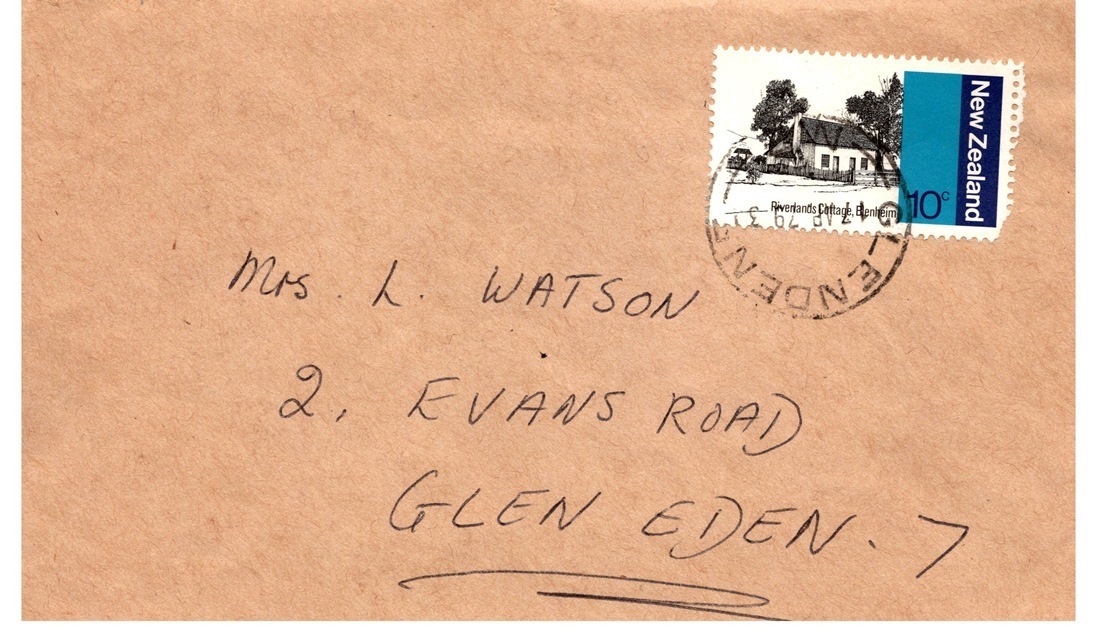 New Zealand
10c
Riverlands Cottage, Blenheim
GLENDENE
79
Mrs. L. WATSON
2, EVANS ROAD
GLEN EDEN. 7